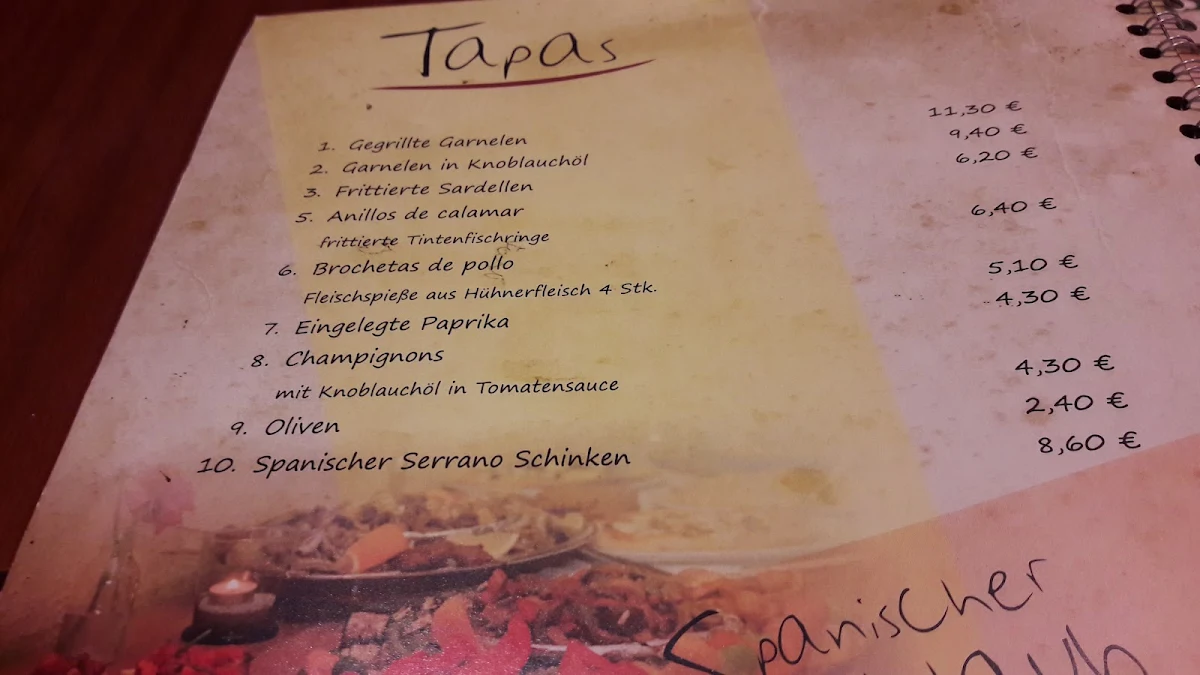 Tapas
1. Gegrillte Garnelen 11,30 €
2. Garnelen in Knoblauchöl 9,40 €
3. Frittierte Sardellen 6,20 €
5. Anillos de calamar
frittierte Tintenfischringe 6,40 €
6. Brochetas de pollo
Fleischspieße aus Hühnerfleisch 4 Stk. 5,10 €
7. Eingelegte Paprika 4,30 €
8. Champignons
mit Knoblauchöl in Tomatensauce 4,30 €
9. Oliven 2,40 €
10. Spanischer Serrano Schinken 8,60 €
Spanischer